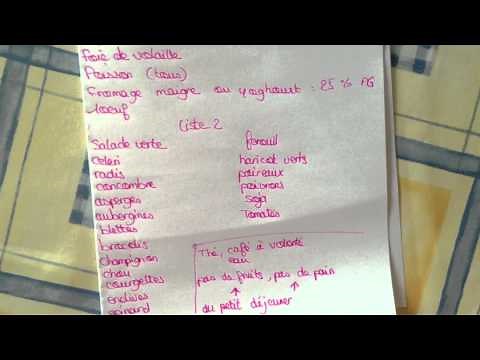 Foie de volaille
Poisson (tous)
Fromage maigre ou yaghourt : 25 % MG
1 oeuf
Liste 2
Salade verte
celeri
radis
concombre
asperges
aubergines
blettes
brocolis
champignon
chou
courgettes
endives
epinard
fenouil
haricot verts
poireaux
poivrons
soja
Tomates
Thé, café à volonté
eau
pas de fruits, pas de pain
du petit déjeuner